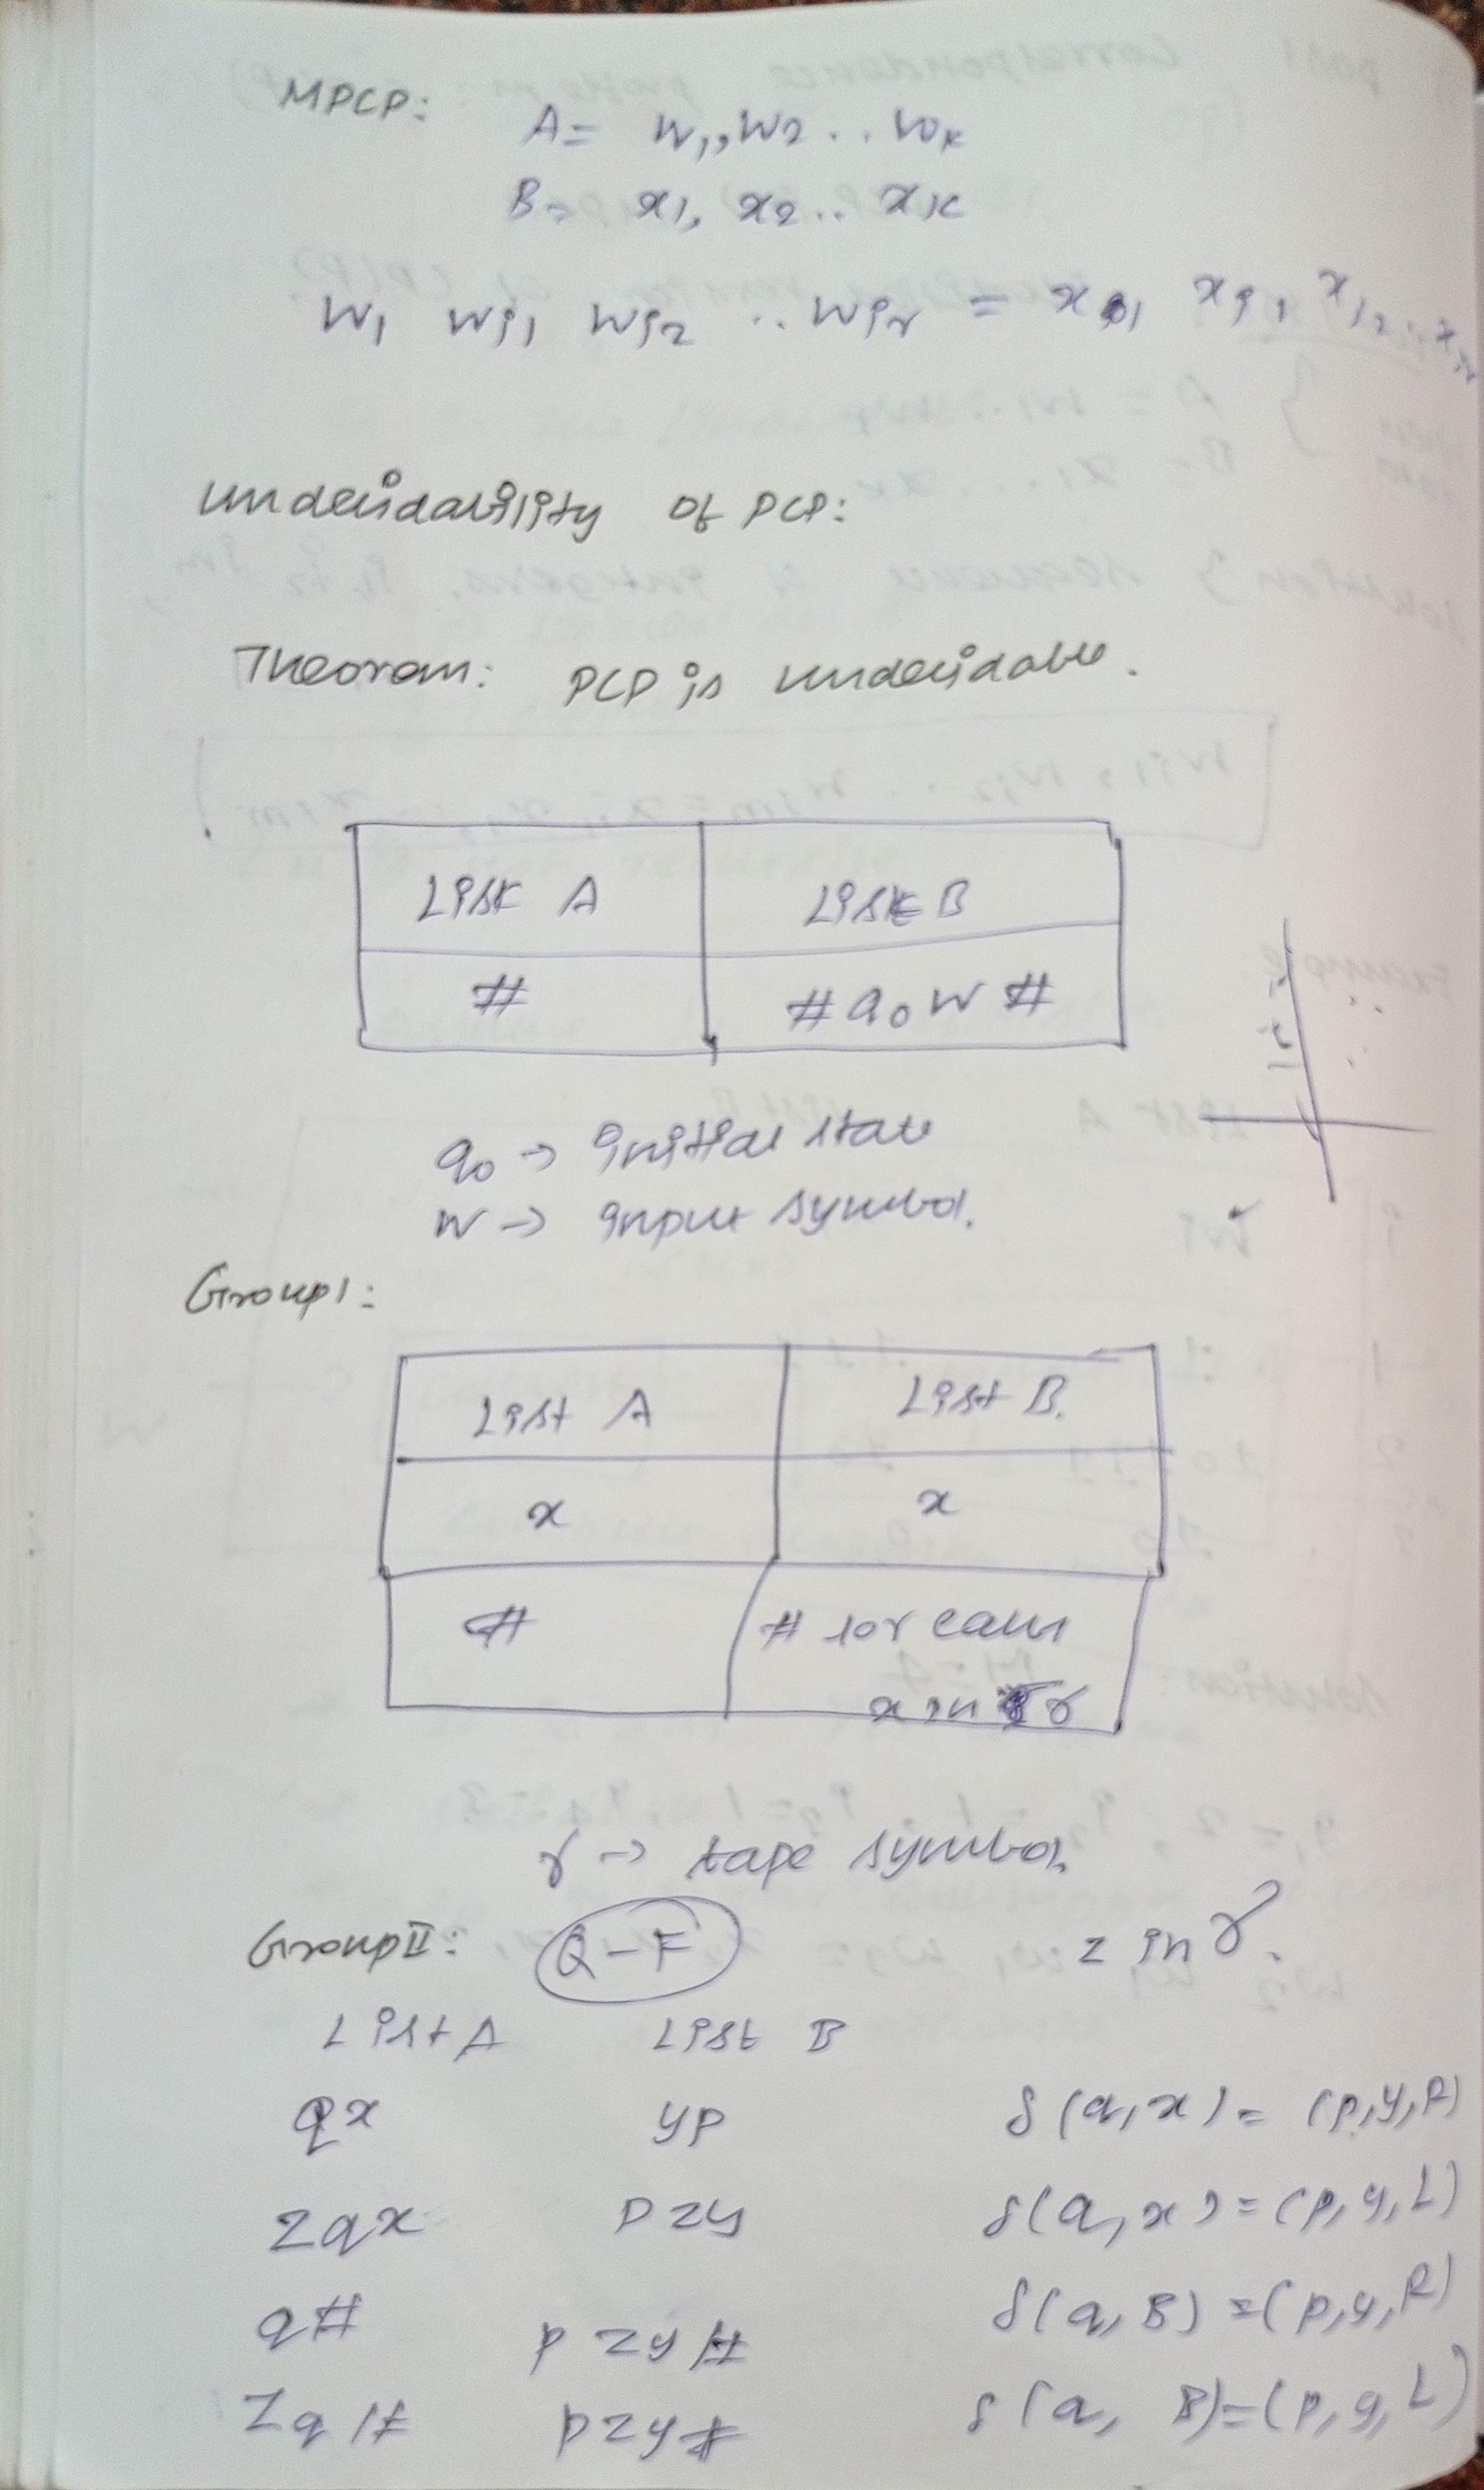 MPCP:
A= W1, W2 .. Wk
B= x1, x2 .. xk
W1 Wi1 Wi2 .. Wir = x1 xi1 xi2 .. xir
Undecidability of PCP:
Theoram: PCP is undecidable.
List A List B
# #q0W#
q0 → initial state
W → input symbol.
Group1:
List A List B.
x x
# # for each
x in γ
γ → tape symbol.
GroupII: Q-F z in γ.
List A List B
qx yp δ(q,x) = (p,y,R)
zqx pzy δ(q,x) = (p,y,L)
q# pzy# δ(q,B) = (p,y,R)
Zq# pzy# δ(q, B) = (p,y,L)